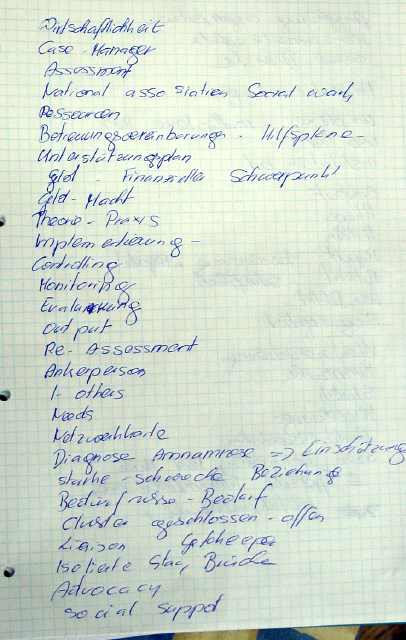 Wirtschaftlichkeit
Case-Manager
Assessment
National assosiation Social work
Ressourcen
Betreuungsvereinbarungen - Hilfspläne -
Unterstützungsplan
Geld - Finanzieller Schwerpunkt
Geld - Macht
Theorie - Praxis
Implementierung -
Controlling
Monitoring
Evaluierung
Output
Re-Assessment
Ankerperson
I - others
Needs
Netzwerkkarte
Diagnose Amnamnese => Einschätzung
starke - schwache Beziehung
Bedürfnisse - Bedarf
Cluster geschlossen - offen
Liaison Gatekeeper
Isolierte Star, Brücke
Advocacy
social support